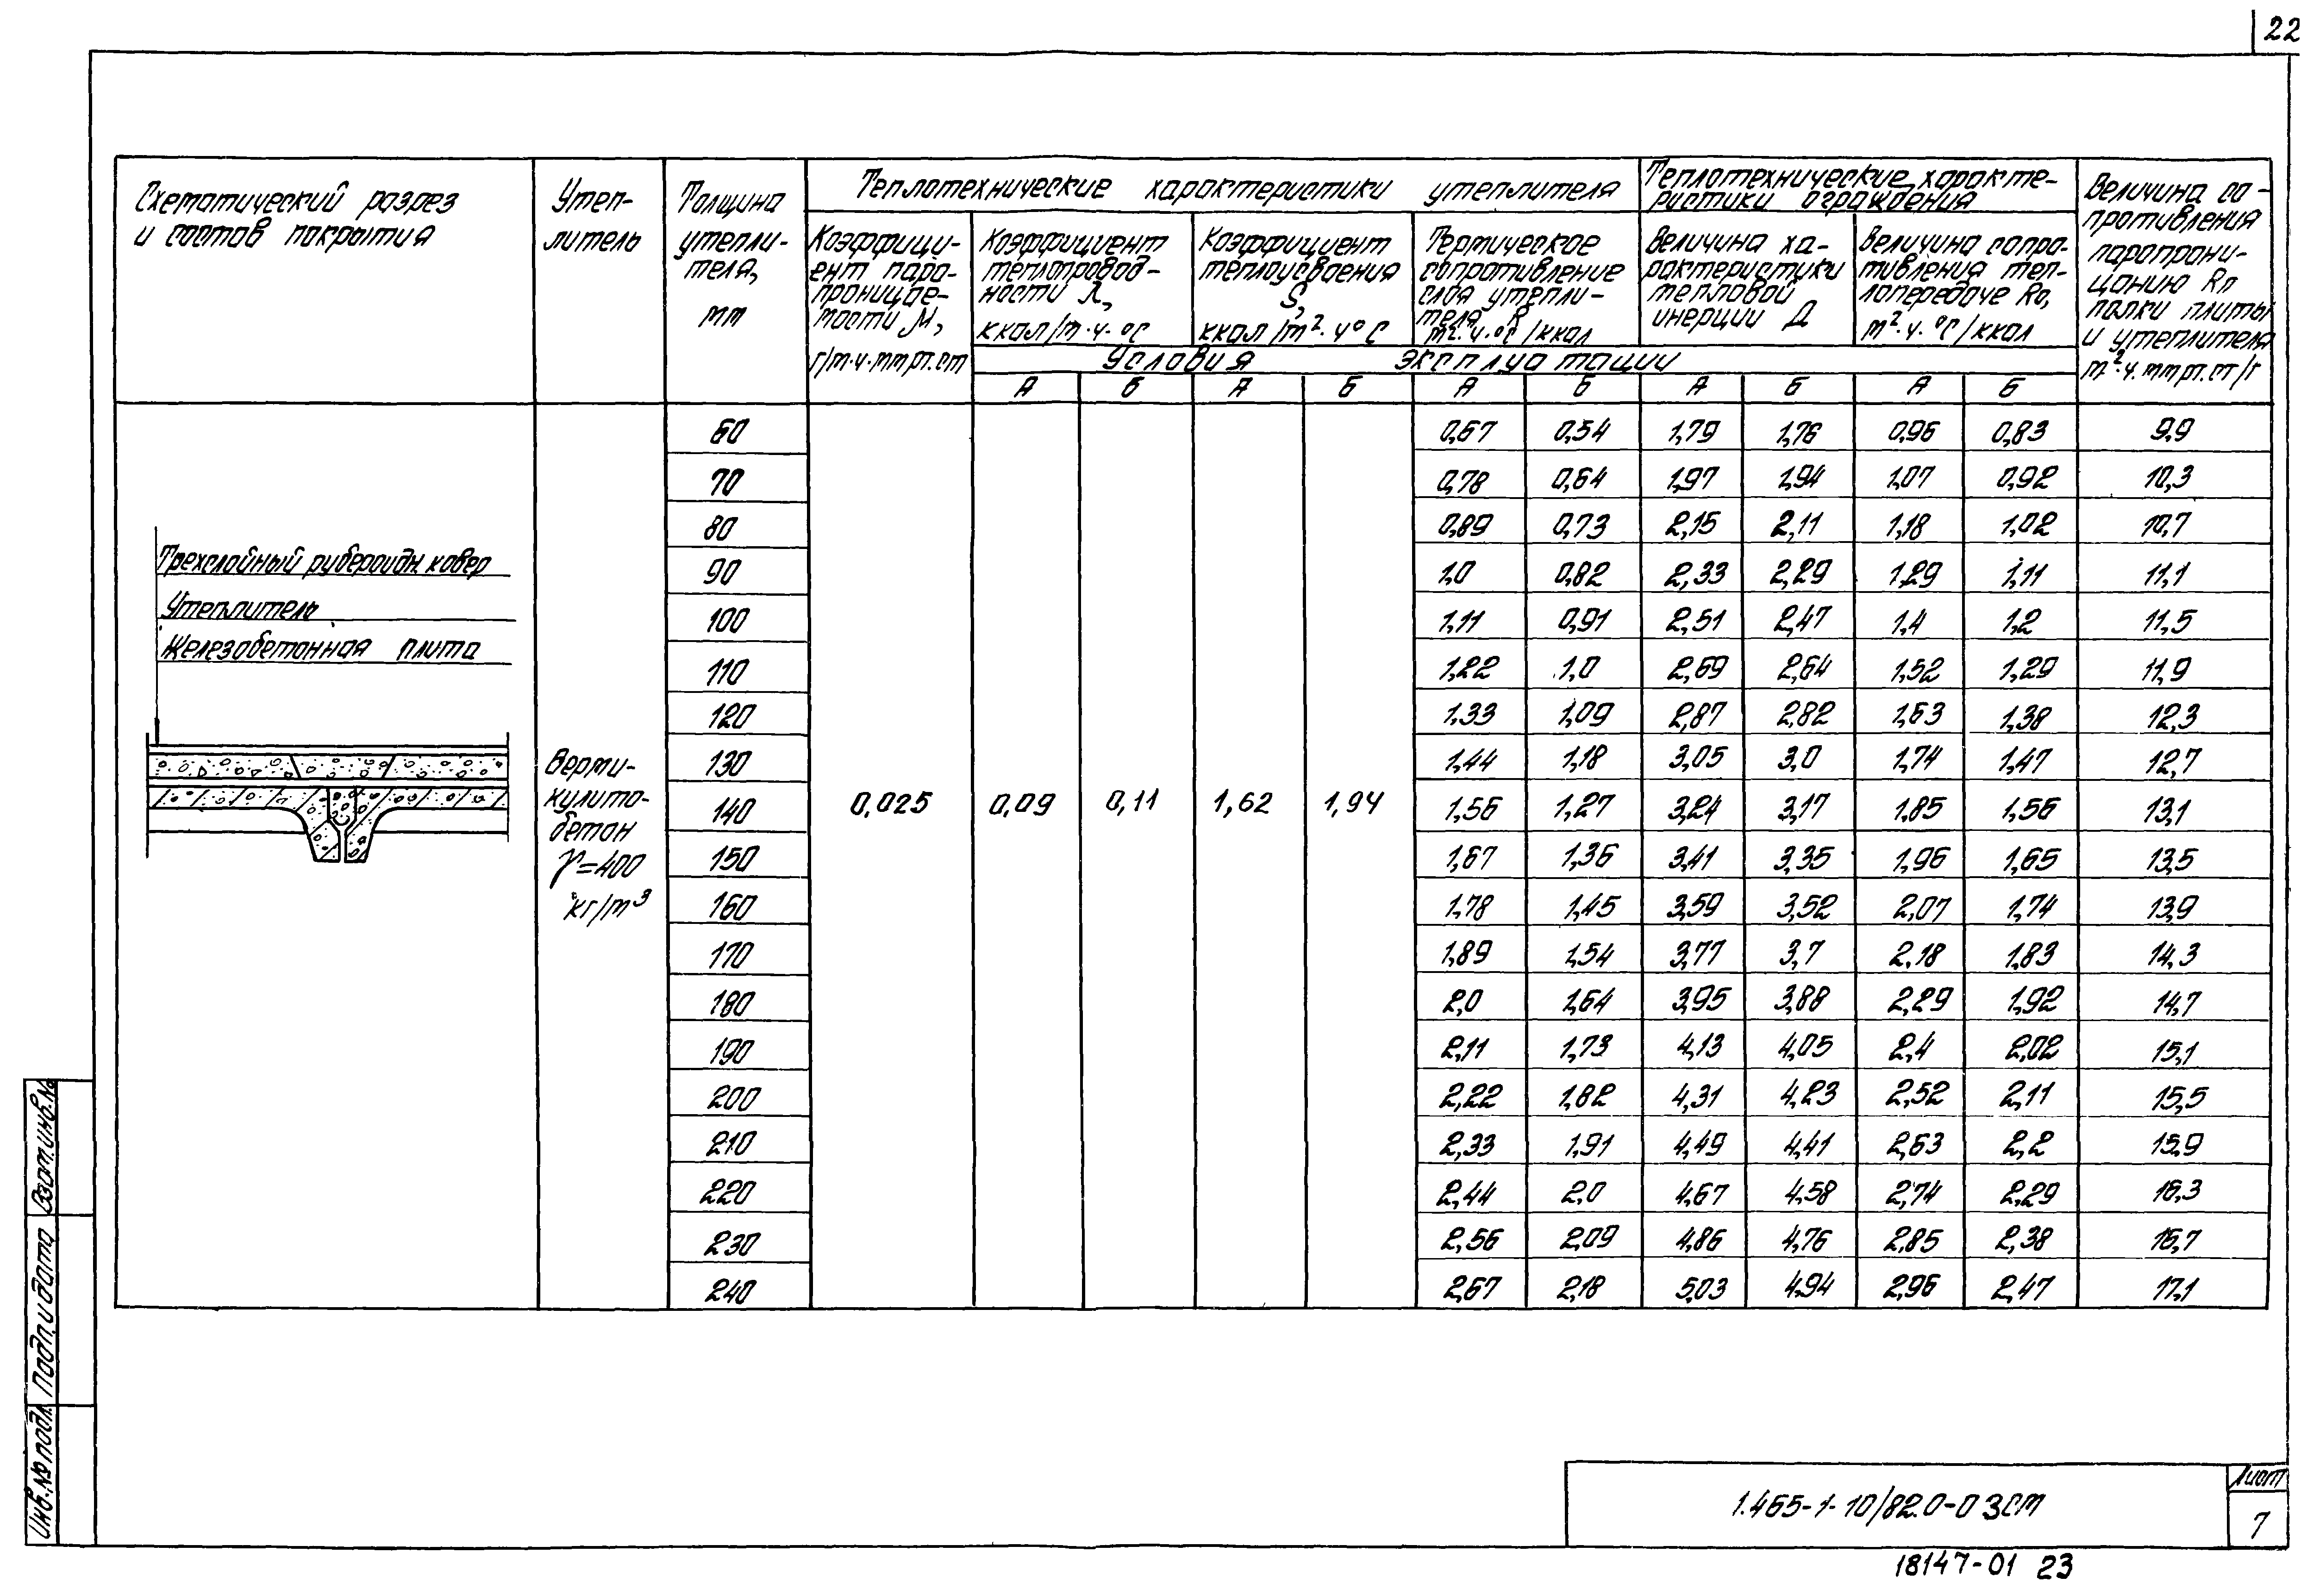 22
Схематический разрез
и состав покрытия
Утеп-
литель
Толщина
утепли-
теля,
мм
Теплотехнические характеристики утеплителя
Коэффици-
ент паро-
проницае-
мости М,
г/м·ч·мм рт.ст
Коэффициент
теплопровод-
ности λ,
ккал/м·ч·°С
Коэффициент
теплоусвоения
S,
ккал/м²·ч°С
Термическое
сопротивление
слоя утепли-
теля R
м²·ч·°С/ккал
Теплотехнические характе-
ристики ограждения
Величина ха-
рактеристики
тепловой
инерции Д
Величина сопро-
тивления теп-
лопередаче Rо,
м²·ч·°С/ккал
Величина со-
противления
паропрони-
цанию Rп
полки плиты
и утеплителя
м²·ч.мм рт.ст/г
Условия эксплуатации
А Б А Б А Б А Б А Б
60 0,67 0,54 1,79 1,76 0,96 0,83 9,9
70 0,78 0,64 1,97 1,94 1,07 0,92 10,3
80 0,89 0,73 2,15 2,11 1,18 1,02 10,7
90 1,0 0,82 2,33 2,29 1,29 1,11 11,1
100 1,11 0,91 2,51 2,47 1,4 1,2 11,5
110 1,22 1,0 2,69 2,64 1,52 1,29 11,9
120 1,33 1,09 2,87 2,82 1,63 1,38 12,3
130 1,44 1,18 3,05 3,0 1,74 1,47 12,7
140 1,56 1,27 3,24 3,17 1,85 1,56 13,1
150 1,67 1,36 3,41 3,35 1,96 1,65 13,5
160 1,78 1,45 3,59 3,52 2,07 1,74 13,9
170 1,89 1,54 3,77 3,7 2,18 1,83 14,3
180 2,0 1,64 3,95 3,88 2,29 1,92 14,7
190 2,11 1,73 4,13 4,05 2,4 2,02 15,1
200 2,22 1,82 4,31 4,23 2,52 2,11 15,5
210 2,33 1,91 4,49 4,41 2,63 2,2 15,9
220 2,44 2,0 4,67 4,58 2,74 2,29 16,3
230 2,56 2,09 4,86 4,76 2,85 2,38 16,7
240 2,67 2,18 5,03 4,94 2,96 2,47 17,1
Трехслойный рубероидн. ковер
Утеплитель
Железобетонная плита
Верми-
кулито-
бетон
γ=400
кг/м³
0,025 0,09 0,11 1,62 1,94
Взам.инв.№
Подп. и дата
Инв.№ подл.
1.465-1-10/82.0-03СМ
Лист
7
18147-01 23